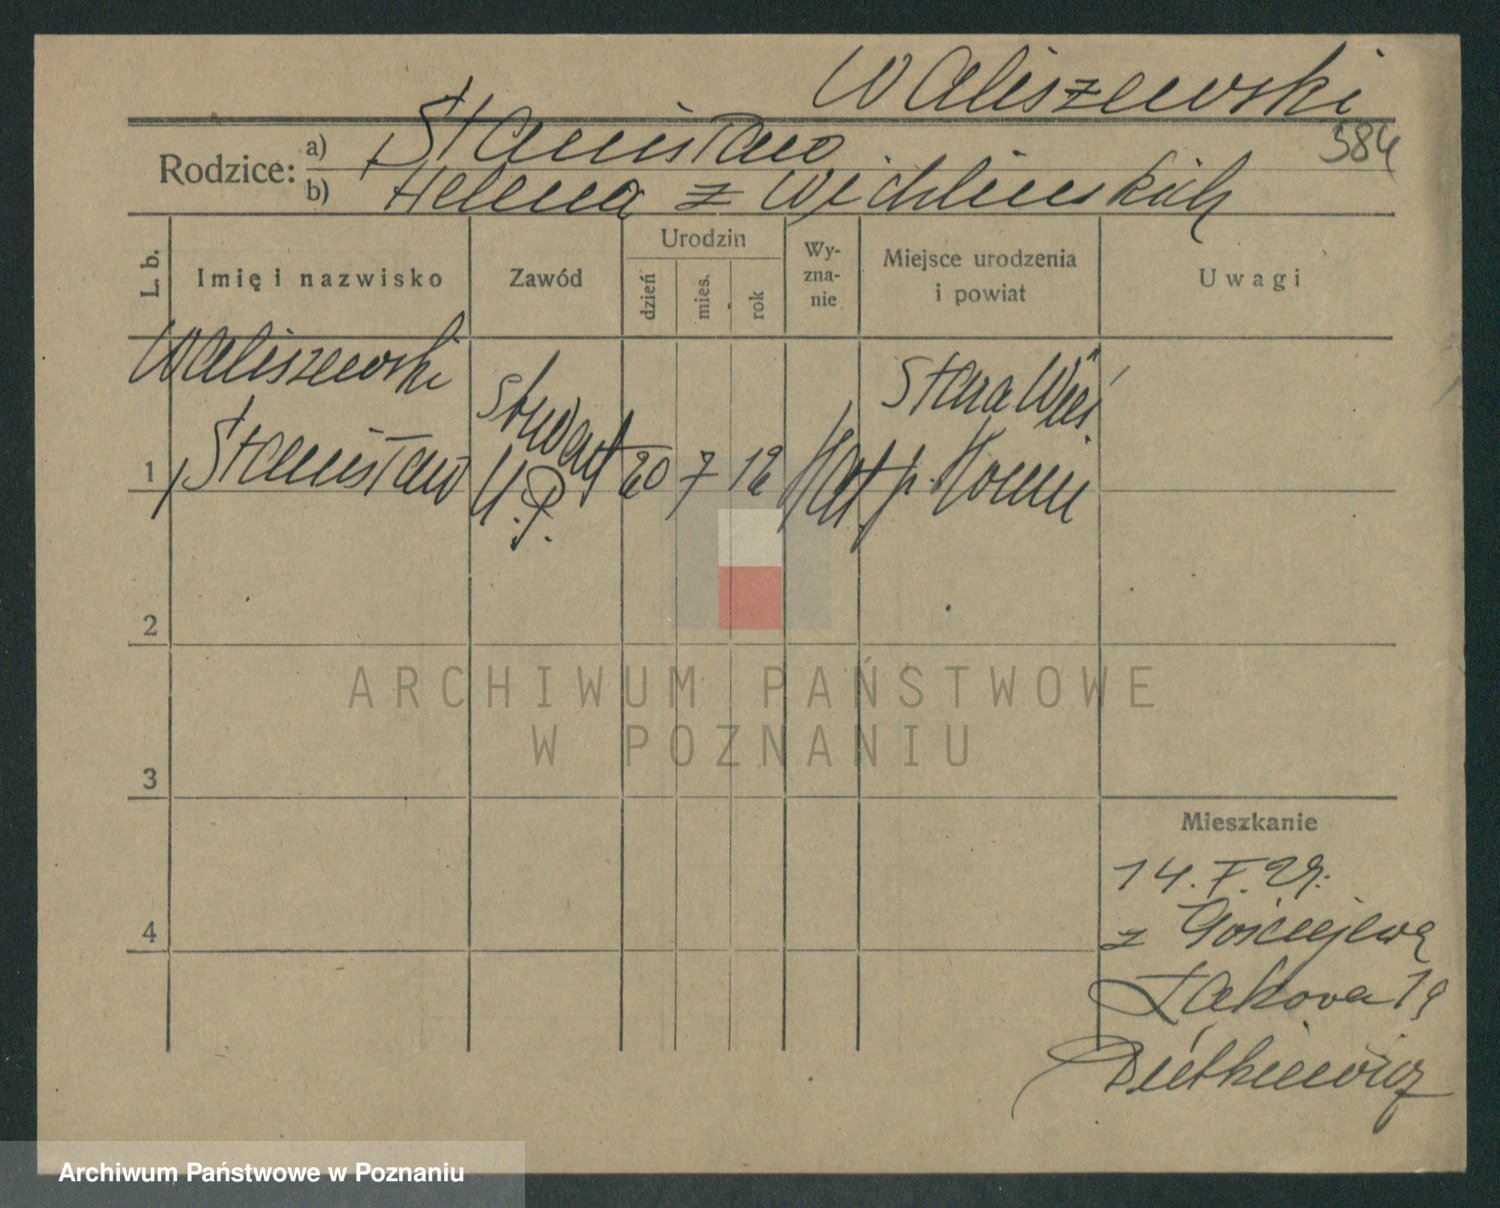 Waliszewski
384
Rodzice: a) Stanisław
b) Helena z Wichlińskich
L. b.
Imię i nazwisko
Zawód
Urodzin
dzień
mies.
rok
Wy-
zna-
nie
Miejsce urodzenia
i powiat
Uwagi
Waliszewski
1 Stanisław
20 7 12
Kat.
Stara Wieś
p.
2
3
4
Mieszkanie
14. X. 29.
z Gościejewa
Łąkowa 19
ARCHIWUM PAŃSTWOWE
W POZNANIU
Archiwum Państwowe w Poznaniu